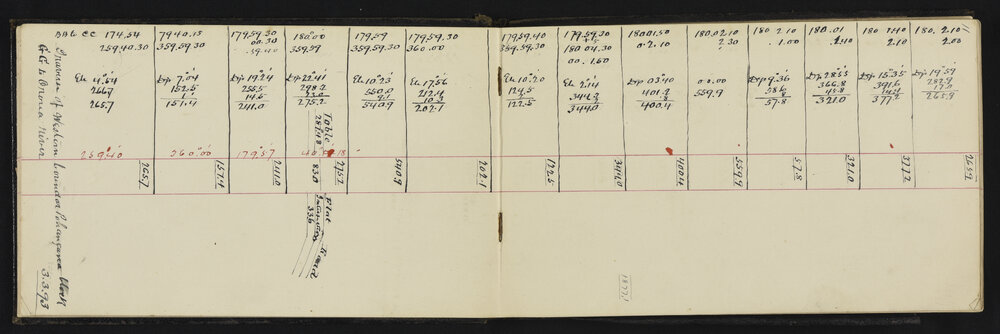 Traverse of Western boundary Pohangarea Block
to Oroua River
3.3.93
BAG CC 174.54
259.40.30
El 4.54
266.7
265.7
259.40
265.7
79 40.15
359.59.30
Dep 7.04
152.5
157.4
360.00
157.4
179.59.30
00.30
59.40
Dep 19.24
255.5
14.5
241.0
179.57
241.0
180.00
359.59
Dep 22.41
298.2
23.0
275.2
275.2
Table
287.48
83.0
Flat
Road
336
179.59
359.59.30
El 10.23
550.0
9.1
540.9
540.9
179.59.30
360.00
El 17.56
212.4
10.3
202.1
202.1
179.59.40
359.59.30
El 10.20
124.5
122.5
122.5
179.59.30
180 04.30
00.1.50
El 2.14
344.2
344.0
344.0
180.01.50
0.2.10
Dep 03.40
401.2
.8
400.4
400.4
180.02.10
2.30
0.0.00
559.9
559.9
180 2.10
1.00
Dep 9.36
58.6
.8
57.8
57.8
180.01
2.40
Dep 28.55
366.8
45.8
321.0
321.0
180 1.40
2.10
Dep 15.35
391.6
14.4
377.2
377.2
180.2.10
2.00
Dep 19.59
282.9
17.0
265.9
265.9
1877.1